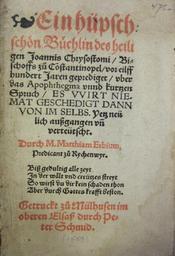 Ein hüpsch
schön Büchlin des heili
gen Joannis Chrysostomi / Bi-
schoffs zů Costantinopel / vor eilff
hundert Jaren geprediget / vber
das Apophthegma vnnd kurtzen
Spruch / ES VVIRT NIE-
MAT GESCHEDIGT DANN
VON IM SELBS. Yetz neü
lich außgangen vñ
verteütscht.
Durch M. Matthiam Erbium,
Predicant zů Rychenwyr.
Biß gedultig alle zeyt
In der wält vnd creützes streyt
So würst du dir kein schaden thon
Aber durch Gottes krafft beston.
Getruckt zů Mülhusen im
oberen Elsaß durch Pe-
ter Schmid.